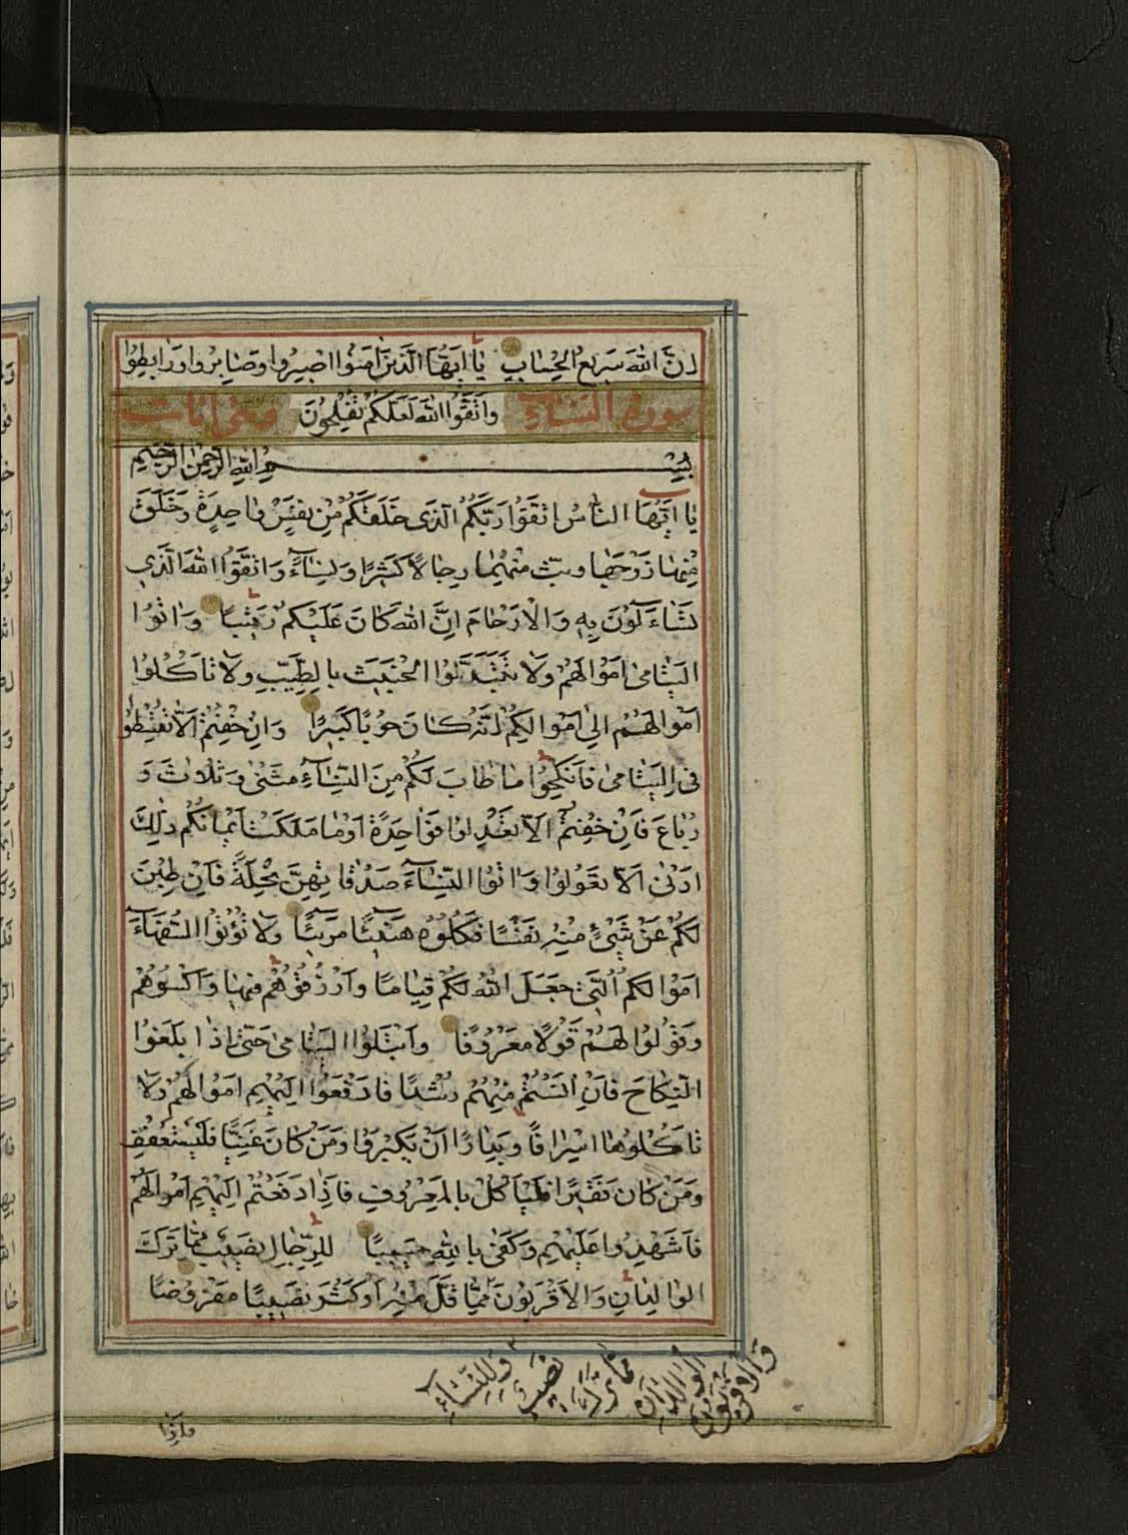 اِنَّ اللهَ سَرِيعُ الْحِسَابِ يَا اَيُّهَا الَّذِينَ اٰمَنُوا اصْبِرُوا وَصَابِرُوا وَرَابِطُوا
سورة النساء وَاتَّقُوا اللهَ لَعَلَّكُمْ تُفْلِحُونَ
بِسْمِ اللهِ الرَّحْمٰنِ الرَّحِيمِ
يَا اَيُّهَا النَّاسُ اتَّقُوا رَبَّكُمُ الَّذِي خَلَقَكُمْ مِنْ نَفْسٍ وَاحِدَةٍ وَخَلَقَ
مِنْهَا زَوْجَهَا وَبَثَّ مِنْهُمَا رِجَالًا كَثِيرًا وَنِسَاءً وَاتَّقُوا اللهَ الَّذِي
تَسَاءَلُونَ بِهِ وَالْاَرْحَامَ اِنَّ اللهَ كَانَ عَلَيْكُمْ رَقِيبًا وَاٰتُوا
الْيَتَامٰى اَمْوَالَهُمْ وَلَا تَتَبَدَّلُوا الْخَبِيثَ بِالطَّيِّبِ وَلَا تَاْكُلُوا
اَمْوَالَهُمْ اِلٰى اَمْوَالِكُمْ اِنَّهُ كَانَ حُوبًا كَبِيرًا وَاِنْ خِفْتُمْ اَلَّا تُقْسِطُوا
فِي الْيَتَامٰى فَانْكِحُوا مَا طَابَ لَكُمْ مِنَ النِّسَاءِ مَثْنٰى وَثُلَاثَ وَ
رُبَاعَ فَاِنْ خِفْتُمْ اَلَّا تَعْدِلُوا فَوَاحِدَةً اَوْ مَا مَلَكَتْ اَيْمَانُكُمْ ذٰلِكَ
اَدْنٰى اَلَّا تَعُولُوا وَاٰتُوا النِّسَاءَ صَدُقَاتِهِنَّ نِحْلَةً فَاِنْ طِبْنَ
لَكُمْ عَنْ شَيْءٍ مِنْهُ نَفْسًا فَكُلُوهُ هَنِيئًا مَرِيئًا وَلَا تُؤْتُوا السُّفَهَاءَ
اَمْوَالَكُمُ الَّتِي جَعَلَ اللهُ لَكُمْ قِيَامًا وَارْزُقُوهُمْ فِيهَا وَاكْسُوهُمْ
وَقُولُوا لَهُمْ قَوْلًا مَعْرُوفًا وَابْتَلُوا الْيَتَامٰى حَتّٰى اِذَا بَلَغُوا
النِّكَاحَ فَاِنْ اٰنَسْتُمْ مِنْهُمْ رُشْدًا فَادْفَعُوا اِلَيْهِمْ اَمْوَالَهُمْ وَلَا
تَاْكُلُوهَا اِسْرَافًا وَبِدَارًا اَنْ يَكْبَرُوا وَمَنْ كَانَ غَنِيًّا فَلْيَسْتَعْفِفْ
وَمَنْ كَانَ فَقِيرًا فَلْيَاْكُلْ بِالْمَعْرُوفِ فَاِذَا دَفَعْتُمْ اِلَيْهِمْ اَمْوَالَهُمْ
فَاَشْهِدُوا عَلَيْهِمْ وَكَفٰى بِاللهِ حَسِيبًا لِلرِّجَالِ نَصِيبٌ مِمَّا تَرَكَ
الْوَالِدَانِ وَالْاَقْرَبُونَ مِمَّا قَلَّ مِنْهُ اَوْ كَثُرَ نَصِيبًا مَفْرُوضًا
وَلِلنِّسَاءِ نَصِيبٌ مِمَّا تَرَكَ الْوَالِدَانِ وَالْاَقْرَبُونَ
وَاِذَا